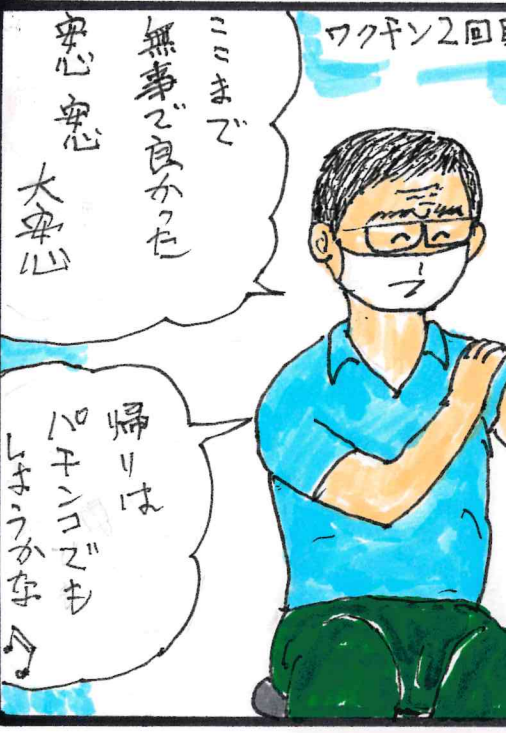 ワクチン2回目
ここまで
無事で良かった
安心 安心
大安心
帰りは
パチンコでも
しようかな♪